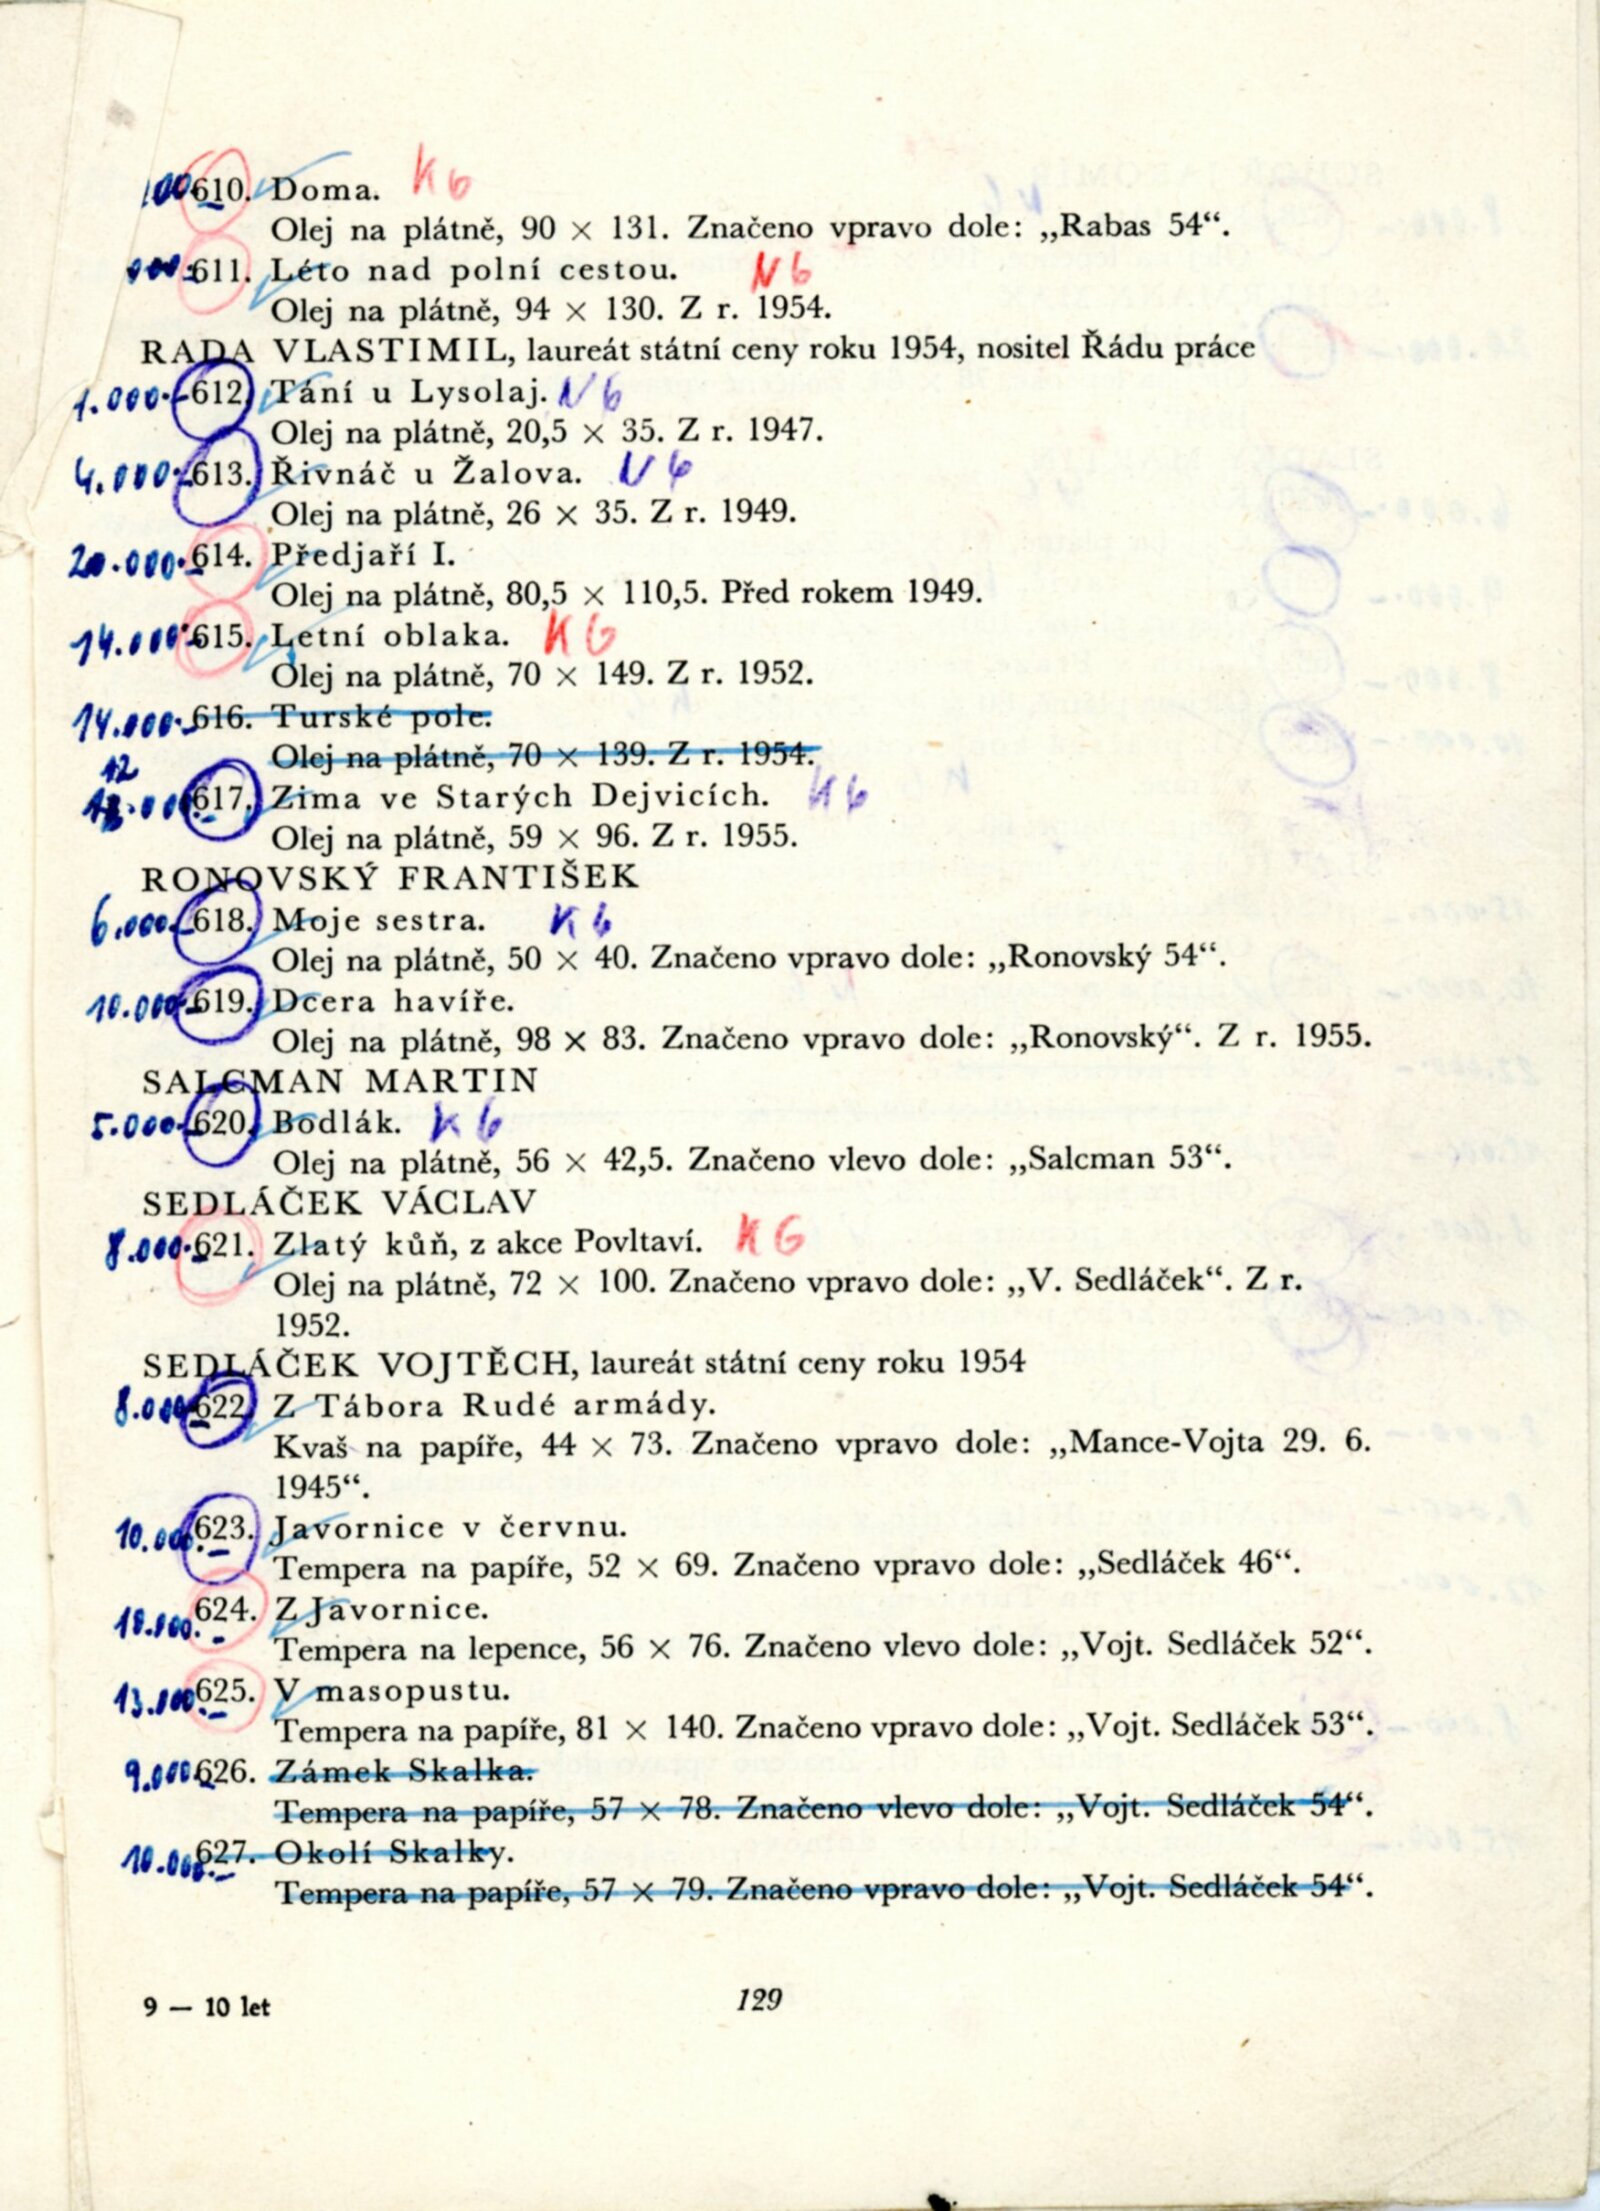 610. Doma. K 6
Olej na plátně, 90 × 131. Značeno vpravo dole: „Rabas 54“.
611. Léto nad polní cestou. N 6
Olej na plátně, 94 × 130. Z r. 1954.
RADA VLASTIMIL, laureát státní ceny roku 1954, nositel Řádu práce
1.000.- 612. Tání u Lysolaj. N 6
Olej na plátně, 20,5 × 35. Z r. 1947.
4.000.- 613. Řivnáč u Žalova. N 6
Olej na plátně, 26 × 35. Z r. 1949.
20.000.- 614. Předjaří I.
Olej na plátně, 80,5 × 110,5. Před rokem 1949.
14.000.- 615. Letní oblaka. K 6
Olej na plátně, 70 × 149. Z r. 1952.
14.000.- 616. Turské pole.
Olej na plátně, 70 × 139. Z r. 1954.
12
617. Zima ve Starých Dejvicích. K 6
Olej na plátně, 59 × 96. Z r. 1955.
RONOVSKÝ FRANTIŠEK
6.000.- 618. Moje sestra. K 6
Olej na plátně, 50 × 40. Značeno vpravo dole: „Ronovský 54“.
10.000.- 619. Dcera havíře.
Olej na plátně, 98 × 83. Značeno vpravo dole: „Ronovský“. Z r. 1955.
SALCMAN MARTIN
5.000.- 620. Bodlák. K 6
Olej na plátně, 56 × 42,5. Značeno vlevo dole: „Salcman 53“.
SEDLÁČEK VÁCLAV
8.000.- 621. Zlatý kůň, z akce Povltaví. K 6
Olej na plátně, 72 × 100. Značeno vpravo dole: „V. Sedláček“. Z r.
1952.
SEDLÁČEK VOJTĚCH, laureát státní ceny roku 1954
8.000.- 622. Z Tábora Rudé armády.
Kvaš na papíře, 44 × 73. Značeno vpravo dole: „Mance-Vojta 29. 6.
1945“.
10.000.- 623. Javornice v červnu.
Tempera na papíře, 52 × 69. Značeno vpravo dole: „Sedláček 46“.
10.000.- 624. Z Javornice.
Tempera na lepence, 56 × 76. Značeno vlevo dole: „Vojt. Sedláček 52“.
13.000.- 625. V masopustu.
Tempera na papíře, 81 × 140. Značeno vpravo dole: „Vojt. Sedláček 53“.
9.000.- 626. Zámek Skalka.
Tempera na papíře, 57 × 78. Značeno vlevo dole: „Vojt. Sedláček 54“.
10.000.- 627. Okolí Skalky.
Tempera na papíře, 57 × 79. Značeno vpravo dole: „Vojt. Sedláček 54“.
9 — 10 let
129